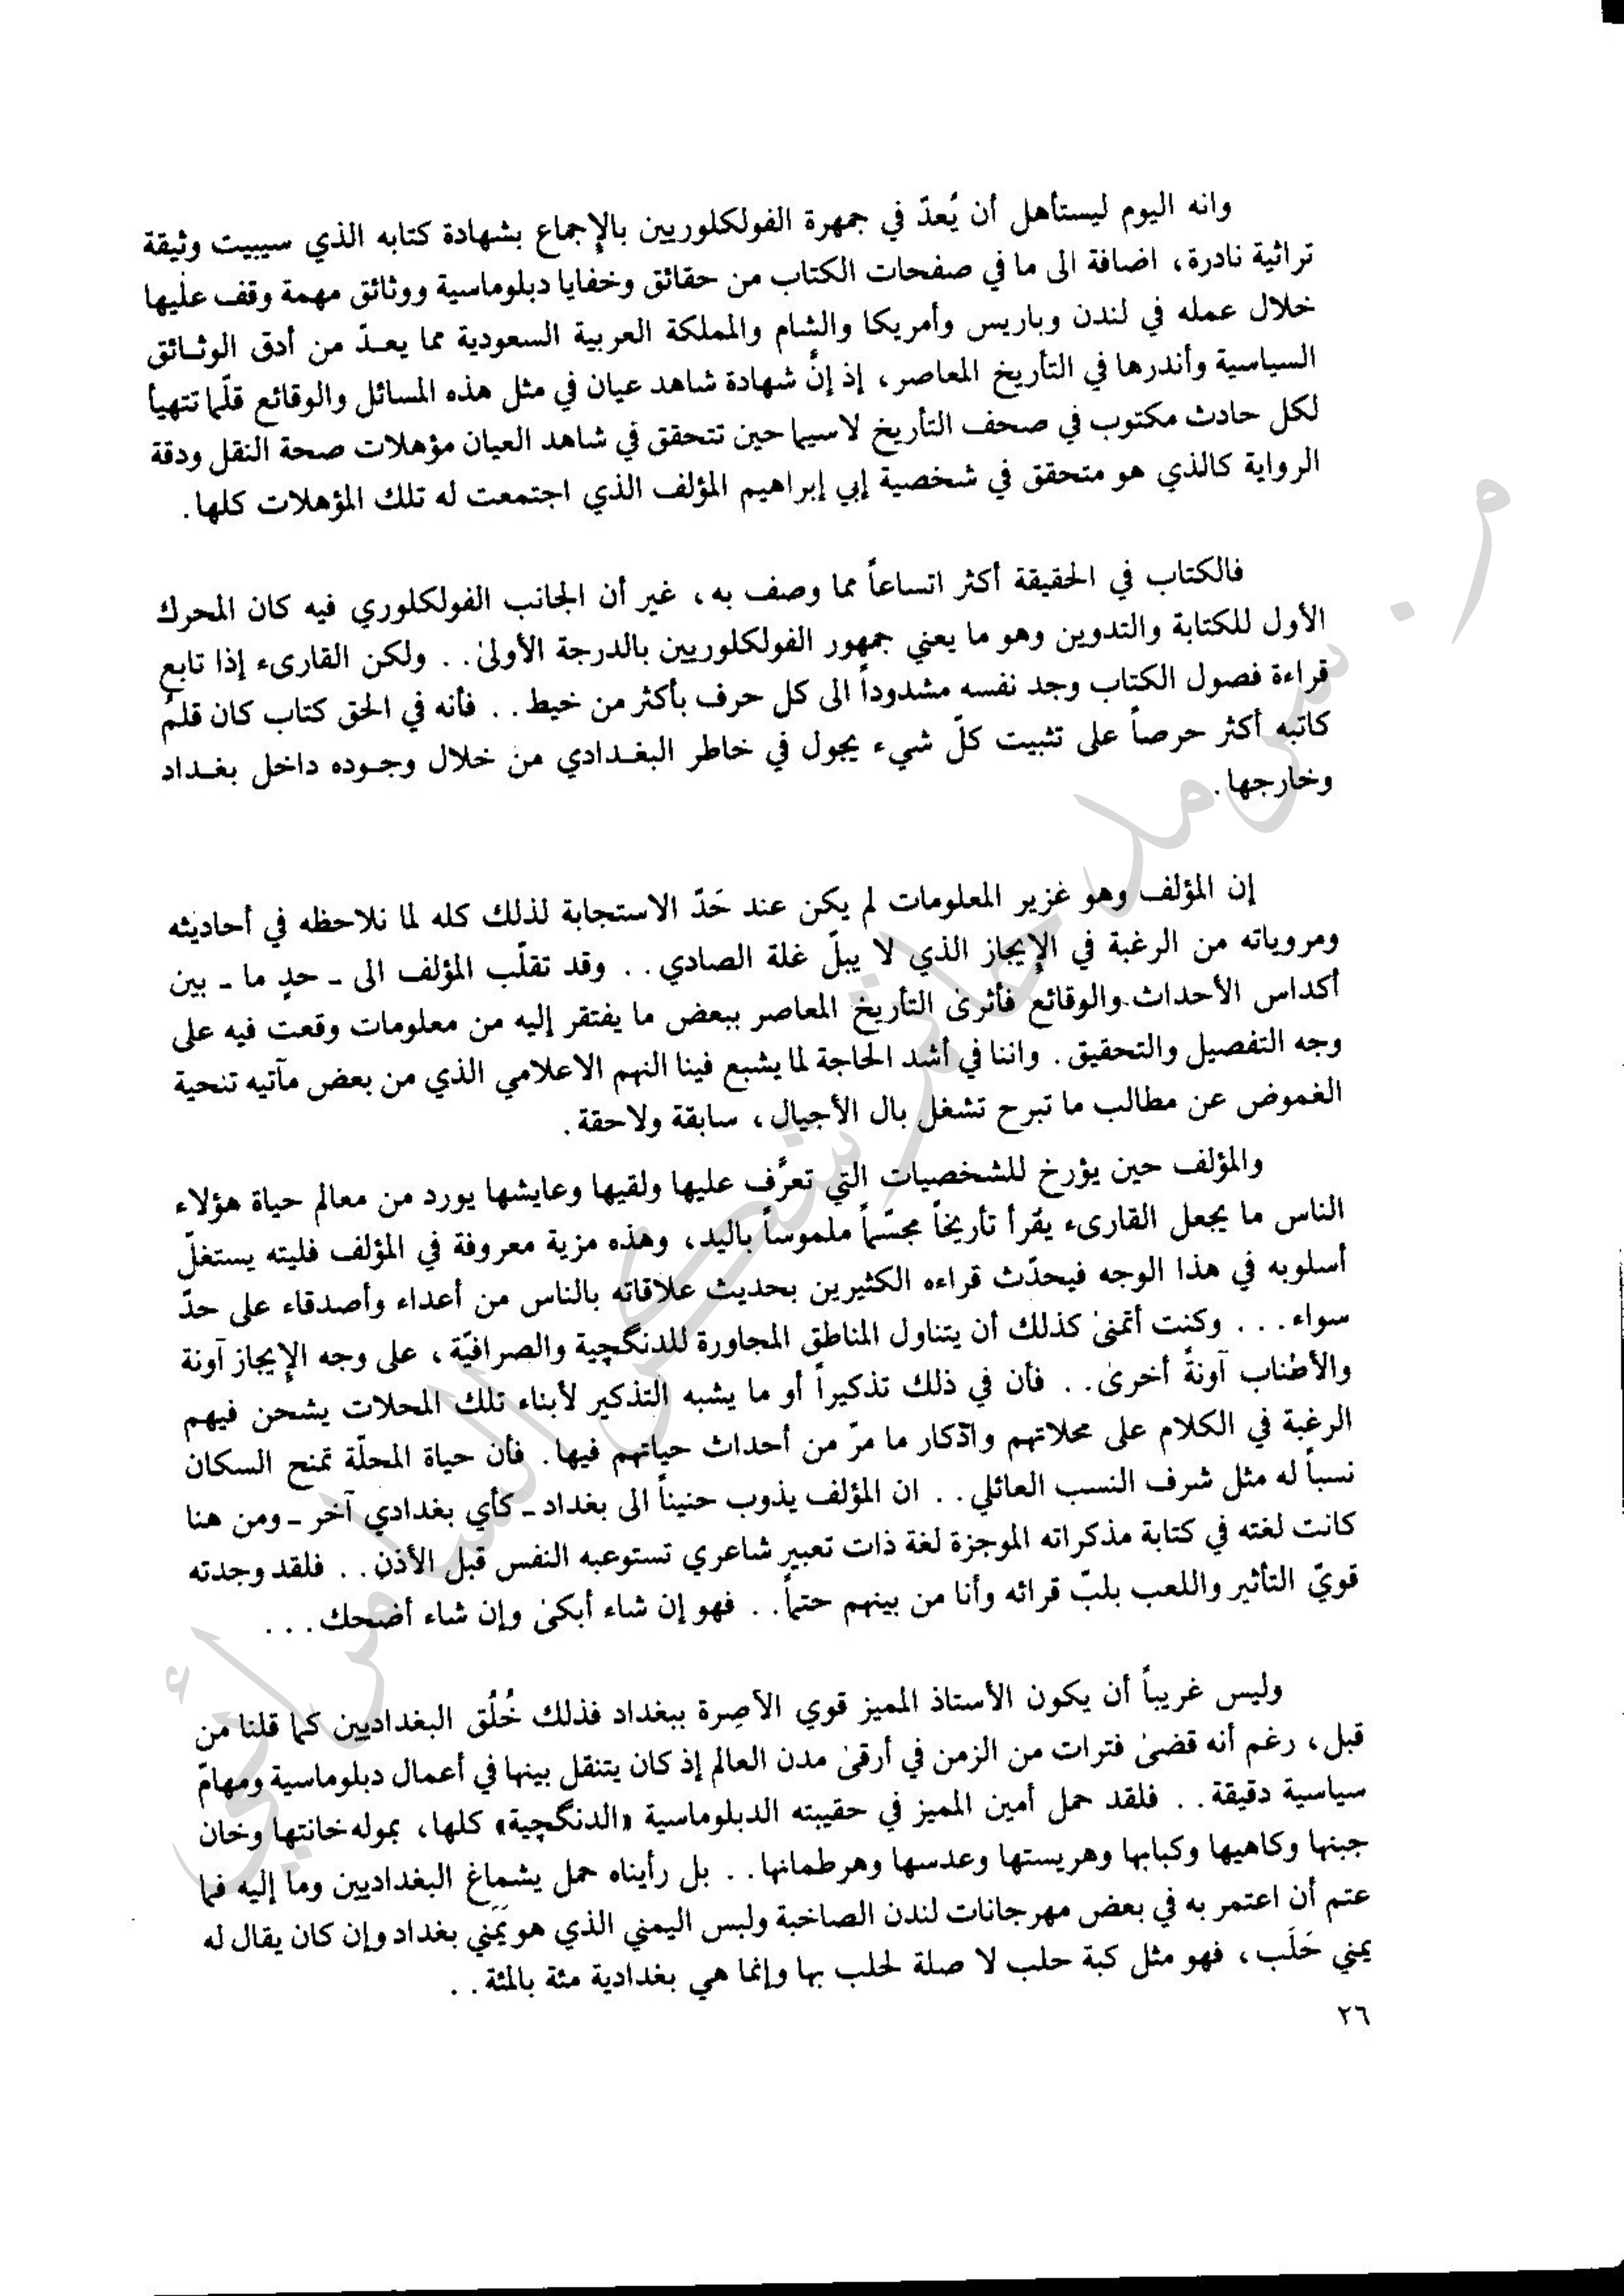 وانه اليوم ليستأهل أن يُعدّ في جمهرة الفولكلوريين بالإجماع بشهادة كتابه الذي سيبيت وثيقة
تراثية نادرة، اضافة الى ما في صفحات الكتاب من حقائق وخفايا دبلوماسية ووثائق مهمة وقف عليها
خلال عمله في لندن وباريس وأمريكا والشام والمملكة العربية السعودية مما يعـدّ من أدق الوثـائق
السياسية وأندرها في التأريخ المعاصر، إذ إنَّ شهادة شاهد عيان في مثل هذه المسائل والوقائع قلّما تتهيأ
لكل حادث مكتوب في صحف التأريخ لاسيما حين تتحقق في شاهد العيان مؤهلات صحة النقل ودقة
الرواية كالذي هو متحقق في شخصية إبي إبراهيم المؤلف الذي اجتمعت له تلك المؤهلات كلها.
فالكتاب في الحقيقة أكثر اتساعاً مما وصف به، غير أن الجانب الفولكلوري فيه كان المحرك
الأول للكتابة والتدوين وهو ما يعني جمهور الفولكلوريين بالدرجة الأولىٰ.. ولكن القارىء إذا تابع
قراءة فصول الكتاب وجد نفسه مشدوداً الى كل حرف بأكثر من خيط.. فأنه في الحق كتاب كان قلمُ
كاتبه أكثر حرصاً على تثبيت كلّ شيء يجول في خاطر البغـدادي من خلال وجـوده داخل بغـداد
وخارجها.
إن المؤلف وهو غزير المعلومات لم يكن عند حَدّ الاستجابة لذلك كله لما نلاحظه في أحاديثه
ومروياته من الرغبة في الإيجاز الذي لا يبلّ غلة الصادي.. وقد تقلّب المؤلف الى ـ حدٍ ما ـ بين
أكداس الأحداث والوقائع فأثرىٰ التأريخ المعاصر ببعض ما يفتقر إليه من معلومات وقعت فيه على
وجه التفصيل والتحقيق. واننا في أشد الحاجة لما يشبع فينا النهم الاعلامي الذي من بعض مآتيه تنحية
الغموض عن مطالب ما تبرح تشغل بال الأجيال، سابقة ولاحقة.
والمؤلف حين يؤرخ للشخصيات التي تعرَّف عليها ولقيها وعايشها يورد من معالم حياة هؤلاء
الناس ما يجعل القارىء يقرأ تأريخاً مجسّماً ملموساً باليد، وهذه مزية معروفة في المؤلف فليته يستغلّ
أسلوبه في هذا الوجه فيحدّث قراءه الكثيرين بحديث علاقاته بالناس من أعداء وأصدقاء على حدّ
سواء... وكنت أتمنىٰ كذلك أن يتناول المناطق المجاورة للدنگچية والصرافيّة، على وجه الإيجاز آونة
والأطناب آونةً أخرىٰ.. فأن في ذلك تذكيراً أو ما يشبه التذكير لأبناء تلك المحلات يشحن فيهم
الرغبة في الكلام على محلاتهم واذّكار ما مرّ من أحداث حياتهم فيها. فأن حياة المحلّة تمنح السكان
نسباً له مثل شرف النسب العائلي.. ان المؤلف يذوب حنيناً الى بغداد ـ كأي بغدادي آخر ـ ومن هنا
كانت لغته في كتابة مذكراته الموجزة لغة ذات تعبير شاعري تستوعبه النفس قبل الأذن.. فلقد وجدته
قويّ التأثير واللعب بلبّ قرائه وأنا من بينهم حتماً.. فهو إن شاء أبكىٰ وإن شاء أضحك...
وليس غريباً أن يكون الأستاذ المميز قوي الآصِرة ببغداد فذلك خُلُق البغداديين كما قلنا من
قبل، رغم أنه قضىٰ فترات من الزمن في أرقىٰ مدن العالم إذ كان يتنقل بينها في أعمال دبلوماسية ومهامّ
سياسية دقيقة.. فلقد حمل أمين المميز في حقيبته الدبلوماسية «الدنگچية» كلها، بموله خانتها وخان
جبنها وكاهيها وكبابها وهريستها وعدسها وهرطمانها.. بل رأيناه حمل يشماغ البغداديين وما إليه فما
عتم أن اعتمر به في بعض مهرجانات لندن الصاخبة ولبس اليمني الذي هو يَمَني بغداد وإن كان يقال له
يمني حَلَب، فهو مثل كبة حلب لا صلة لحلب بها وإنما هي بغدادية مئة بالمئة..
٢٦